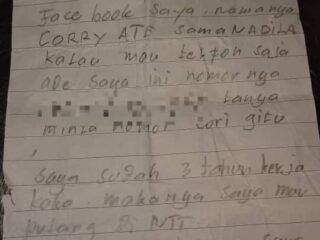 Face book saya namanya
CORRY ATE sama NADILA
kalau mau telpon saja
ade saya ini nomor nya
tanya
minta nomor Cori gitu
saya sudah 3 tahun kerja
kaka makanya saya mau
pulang di NTT